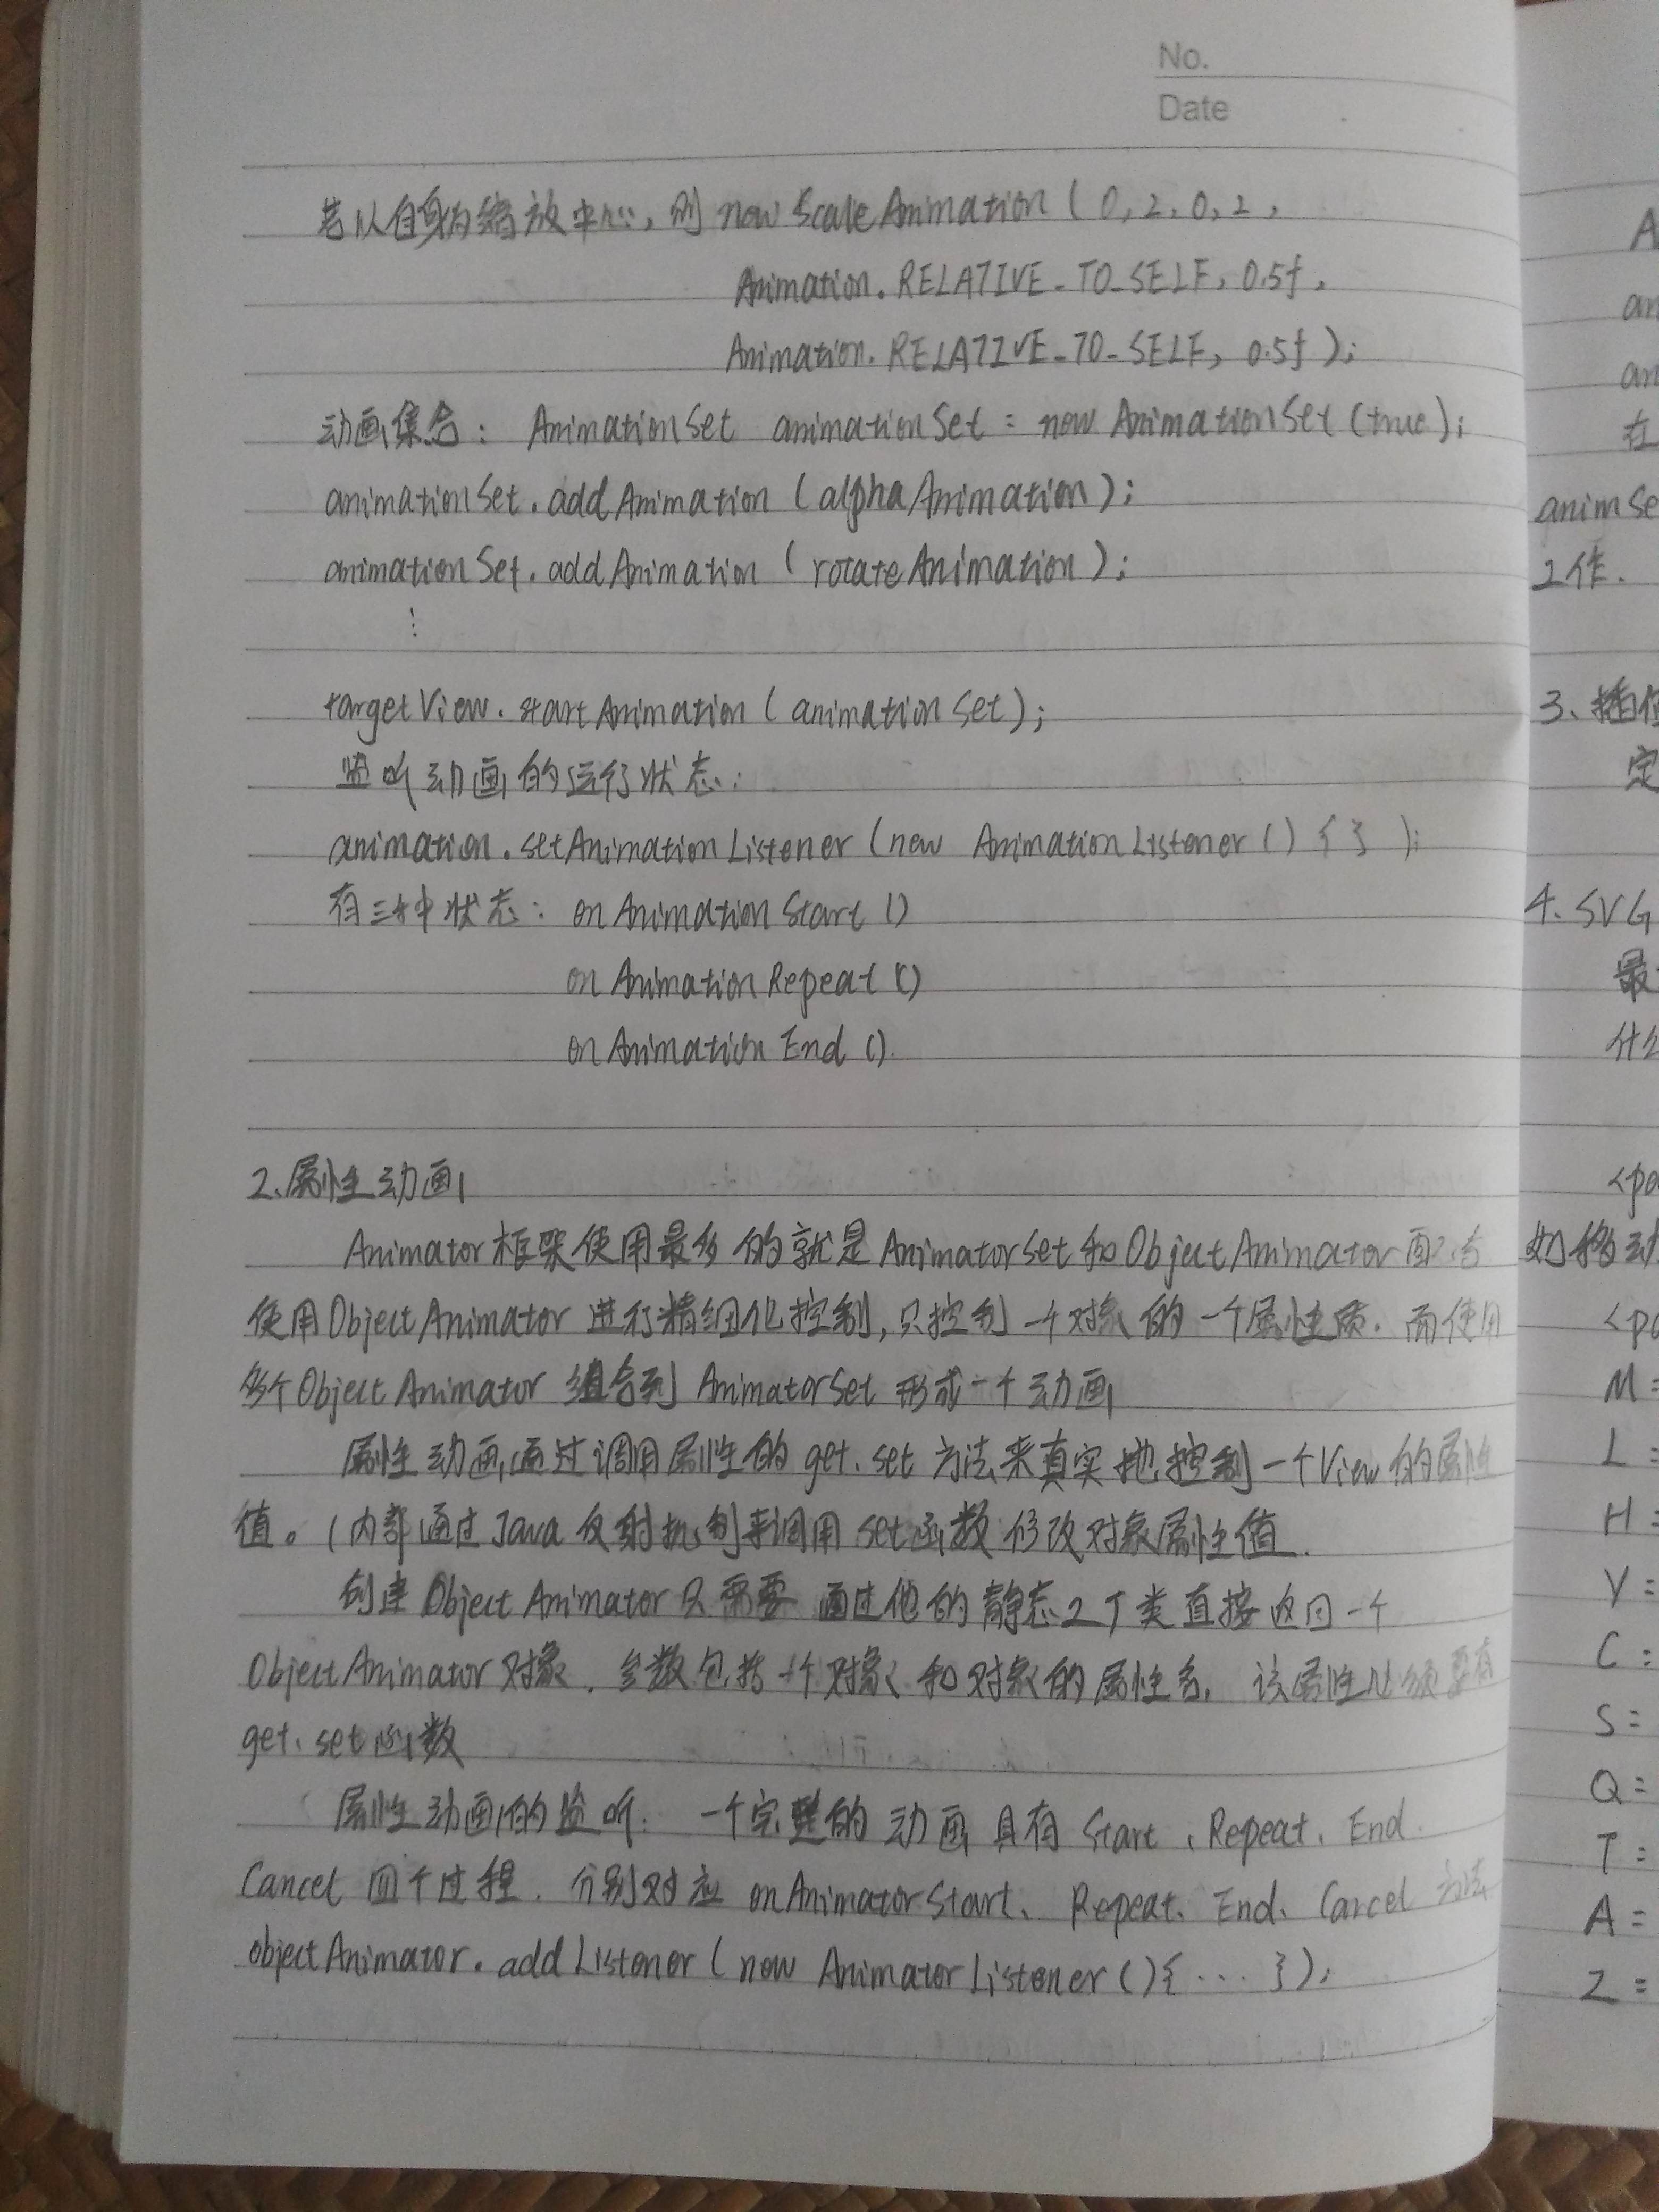 No.
Date
若以自身为缩放中心,则 new ScaleAnimation ( 0, 2, 0, 2,
Animation. RELATIVE_TO_SELF, 0.5f,
Animation. RELATIVE_TO_SELF, 0.5f );
动画集合: AnimationSet animationSet = new AnimationSet (true);
animationSet. addAnimation (alphaAnimation);
animationSet. addAnimation ( rotateAnimation );
⋮
targetView. startAnimation ( animationSet );
监听动画的运行状态:
animation. setAnimationListener (new AnimationListener () { } );
有三种状态: onAnimationStart ()
onAnimationRepeat ()
onAnimationEnd ().
2、属性动画
Animator框架使用最多的就是AnimatorSet和ObjectAnimator配合
使用ObjectAnimator 进行精细化控制,只控制一个对象的一个属性质. 而使用
多个ObjectAnimator 组合到 AnimatorSet 形成一个动画
属性动画通过调用属性的 get、set 方法来真实地控制一个View的属性
值。(内部通过Java反射机制来调用set函数修改对象属性值.
创建 ObjectAnimator 只需要 通过他的静态工厂类直接返回一个
ObjectAnimator 对象. 参数包括一个对象和对象的属性名, 该属性必须要有
get、set函数
属性动画的监听: 一个完整的动画具有 Start、Repeat、End
Cancel 四个过程. 分别对应 onAnimatorStart、Repeat、End、Cancel 方法
objectAnimator. addListener ( new AnimatorListener () { ... } );
A
an
an
在
animSe
工作.
3、插值
定
4. SVG
最
什么
<pa
如移动
<pa
M =
L =
H =
V =
C =
S =
Q =
T =
A =
Z =